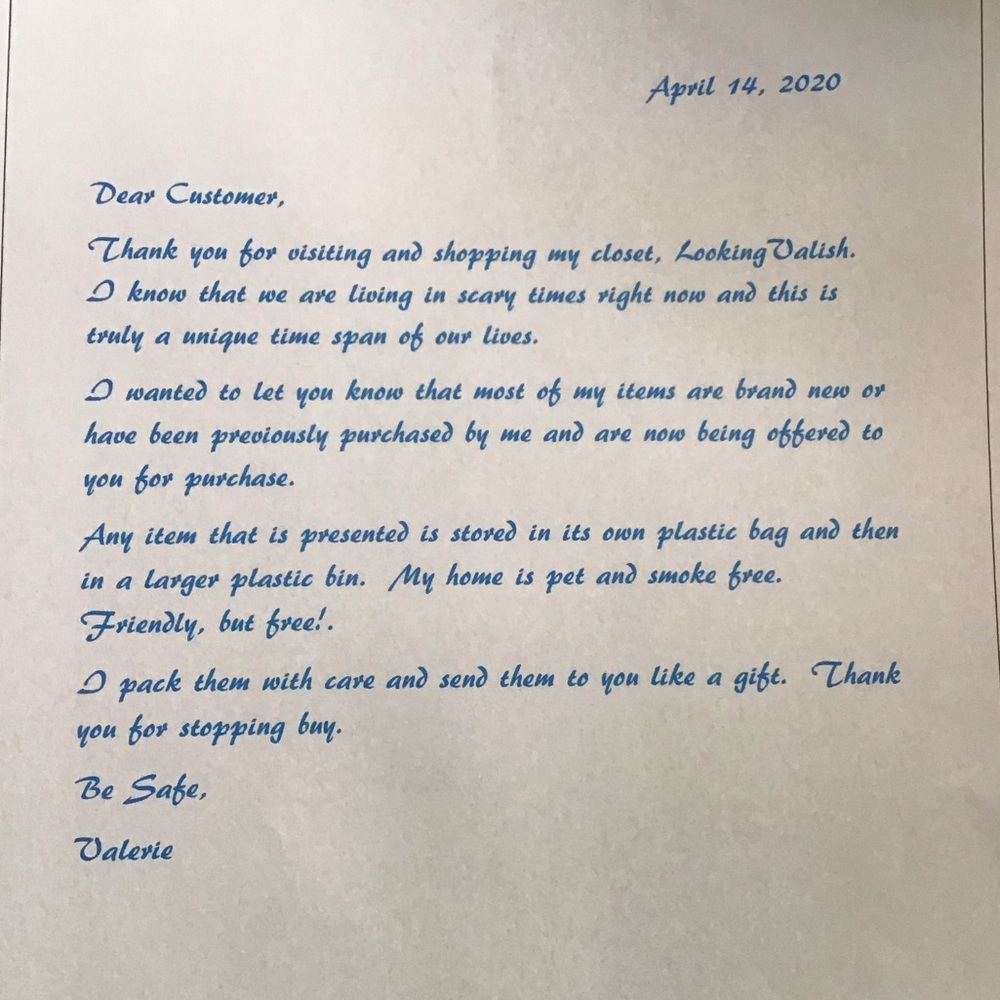 April 14, 2020
Dear Customer,
Thank you for visiting and shopping my closet, LookingValish.
I know that we are living in scary times right now and this is
truly a unique time span of our lives.
I wanted to let you know that most of my items are brand new or
have been previously purchased by me and are now being offered to
you for purchase.
Any item that is presented is stored in its own plastic bag and then
in a larger plastic bin.  My home is pet and smoke free.
Friendly, but free!.
I pack them with care and send them to you like a gift.  Thank
you for stopping buy.
Be Safe,
Valerie